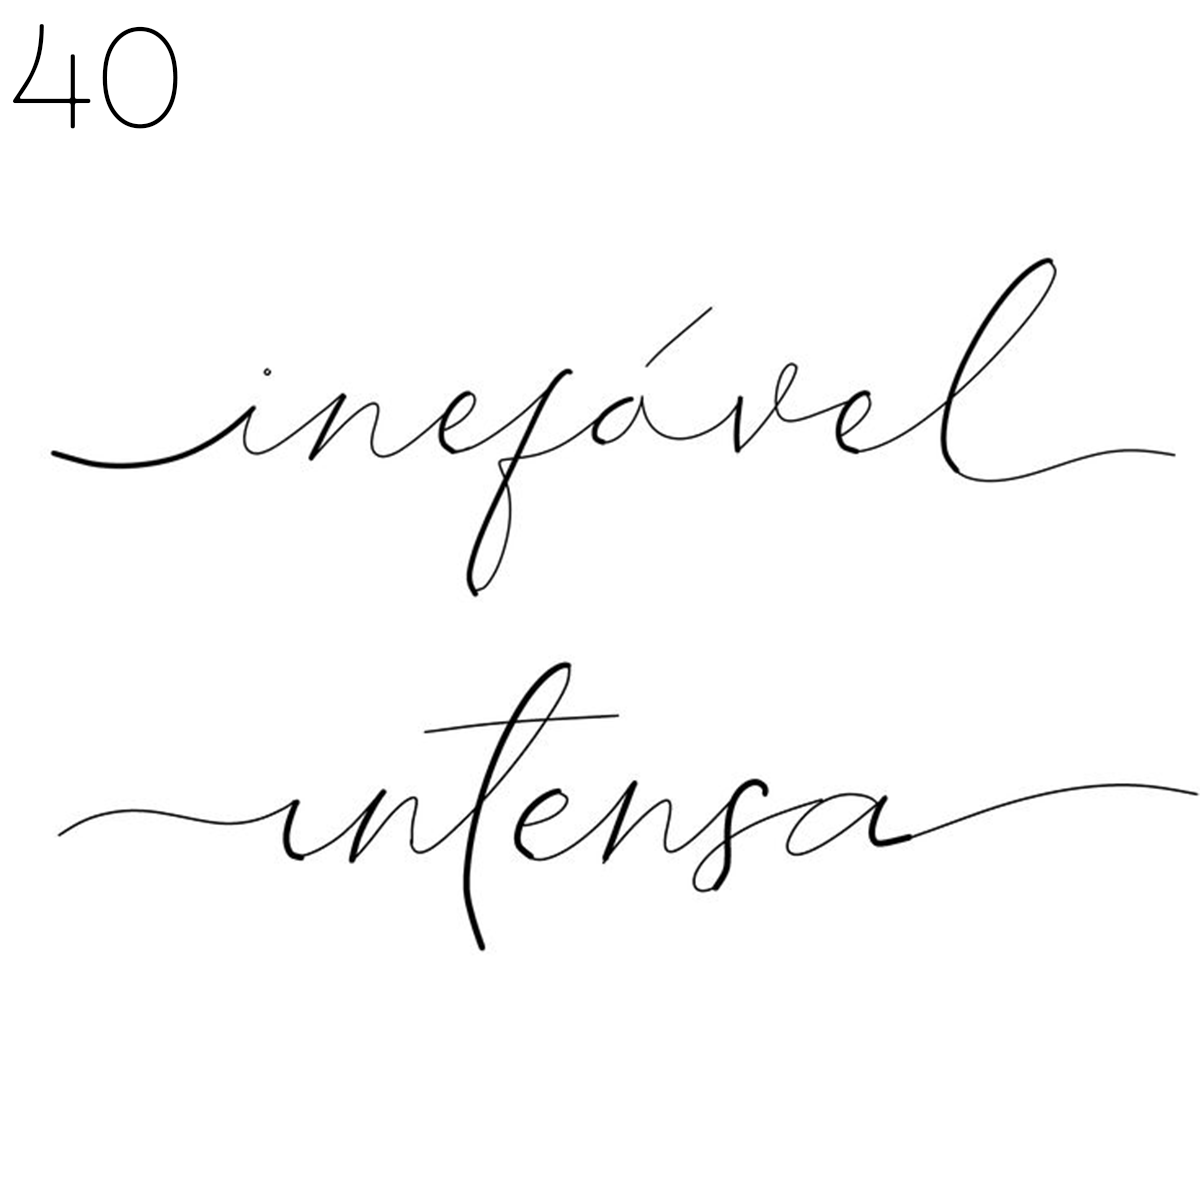 40
inefável
intensa